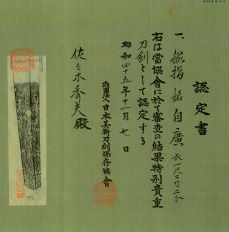 認定書
一、脇指 銘 自廣 長一尺二寸二分
右は當協會に於て審査の結果特別貴重
刀劍として認定する
昭和四十五年十一月七日
財團法人日本美術刀劍保存協會
佐々木秀夫殿